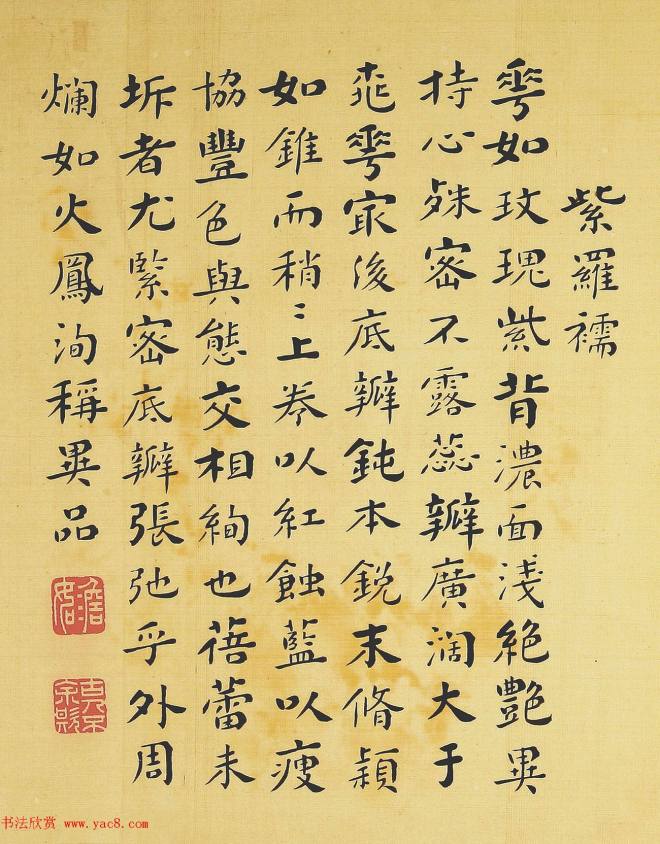 紫羅襦
華如玫瑰紫背濃面淺絶艷異
持心殊密不露蕊瓣廣濶大于
華㝡後底瓣鈍本銳末脩穎
如錐而稍〻上卷以紅蝕藍以瘦
協豐色與態交相絢也蓓蕾未
坼者尤緊密底瓣張弛乎外周
爛如火鳳洵稱異品
书法欣赏 www.yac8.com